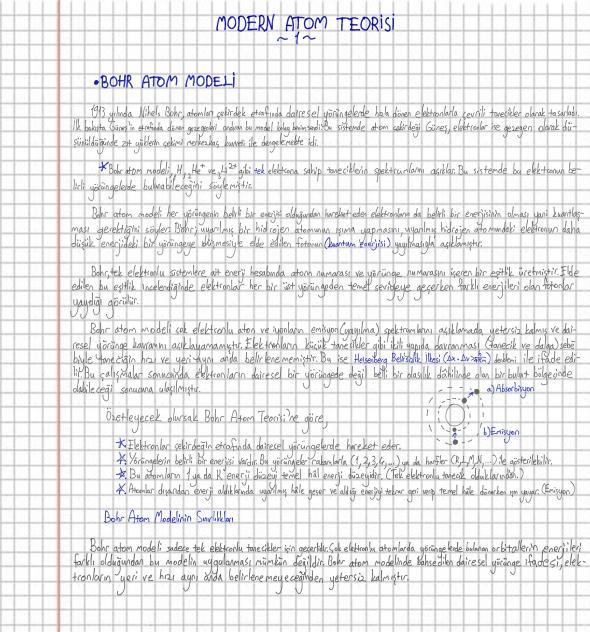 MODERN ATOM TEORİSİ
~ 1 ~
•BOHR ATOM MODELİ
1913 yılında Niels Bohr, atomları çekirdek etrafında dairesel yörüngelerde hala dönen elektronlarla çevrili tanecikler olarak tasarladı.
İlk bakışta Güneş'in etrafında dönen gezegenleri andıran bu model kolay benimsendi. Bu sistemde atom çekirdeği Güneş, elektronlar ise gezegen olarak dü-
şünüldüğünde zıt yüklerin çekimi merkezkaç kuvveti ile dengelemekte idi.
*Bohr atom modeli, H, He⁺ ve Li²⁺ gibi tek elektrona sahip taneciklerin spektrumlarını açıklar. Bu sistemde bu elektronun be-
lirli yörüngelerde bulunabileceğini söylemiştir.
Bohr atom modeli her yörüngenin belirli bir enerjisi olduğundan hareket eden elektronların da belirli bir enerjisinin olması yani kuantlaş-
ması gerektiğini söyler. Bohr; uyarılmış bir hidrojen atomunun ışıma yapmasını, uyarılmış hidrojen atomundaki elektronun daha
düşük enerjideki bir yörüngeye düşmesiyle elde edilen fotonun (kuantum enerjisi) yayılmasıyla açıklamıştır.
Bohr, tek elektronlu sistemlere ait enerji hesabında atom numarası ve yörünge numarasını içeren bir eşitlik üretmiştir. Elde
edilen bu eşitlik incelendiğinde elektronlar her bir üst yörüngeden temel seviyeye geçerken farklı enerjileri olan fotonlar
yaydığı görülür.
Bohr atom modeli çok elektronlu atom ve iyonların emisyon (yayılma) spektrumlarını açıklamada yetersiz kalmış ve dai-
resel yörünge kavramını açıklayamamıştır. Elektronların küçük tanecikler gibi ikili yapıda davranması (tanecik ve dalga) sebe-
biyle taneciğin hızı ve yeri aynı anda belirlenememiştir. Bu ise Heisenberg Belirsizlik İlkesi denklemi ile ifade edi-
lir. Bu çalışmalar sonucunda elektronların dairesel bir yörüngede değil belli bir olasılık dahilinde olan bir bulut bölgesinde
olabileceği sonucuna ulaşılmıştır.
a) Absorbsiyon
b) Emisyon
Özetleyecek olursak Bohr Atom Teorisi'ne göre,
* Elektronlar çekirdeğin etrafında dairesel yörüngelerde hareket eder.
* Yörüngelerin belirli bir enerjisi vardır. Bu yörüngeler rakamlarla (1,2,3,4,...) ya da harfler (K,L,M,N,...) ile gösterilebilir.
* Bu atomların 1 ya da K enerji düzeyi temel hâl enerji düzeyidir. (Tek elektronlu tanecik olduklarından.)
* Atomlar dışarıdan enerji aldıklarında uyarılmış hâle geçer ve aldığı enerjiyi tekrar geri verip temel hâle dönerken ışın yayar. (Emisyon)
Bohr Atom Modelinin Sınırlılıkları
Bohr atom modeli sadece tek elektronlu tanecikler için geçerlidir. Çok elektronlu atomlarda yörüngelerde bulunan orbitallerin enerjileri
farklı olduğundan bu modelin uygulanması mümkün değildir. Bohr atom modelinde bahsedilen dairesel yörünge ifadesi, elek-
tronların yeri ve hızı aynı anda belirlenemeyeceğinden yetersiz kalmıştır.